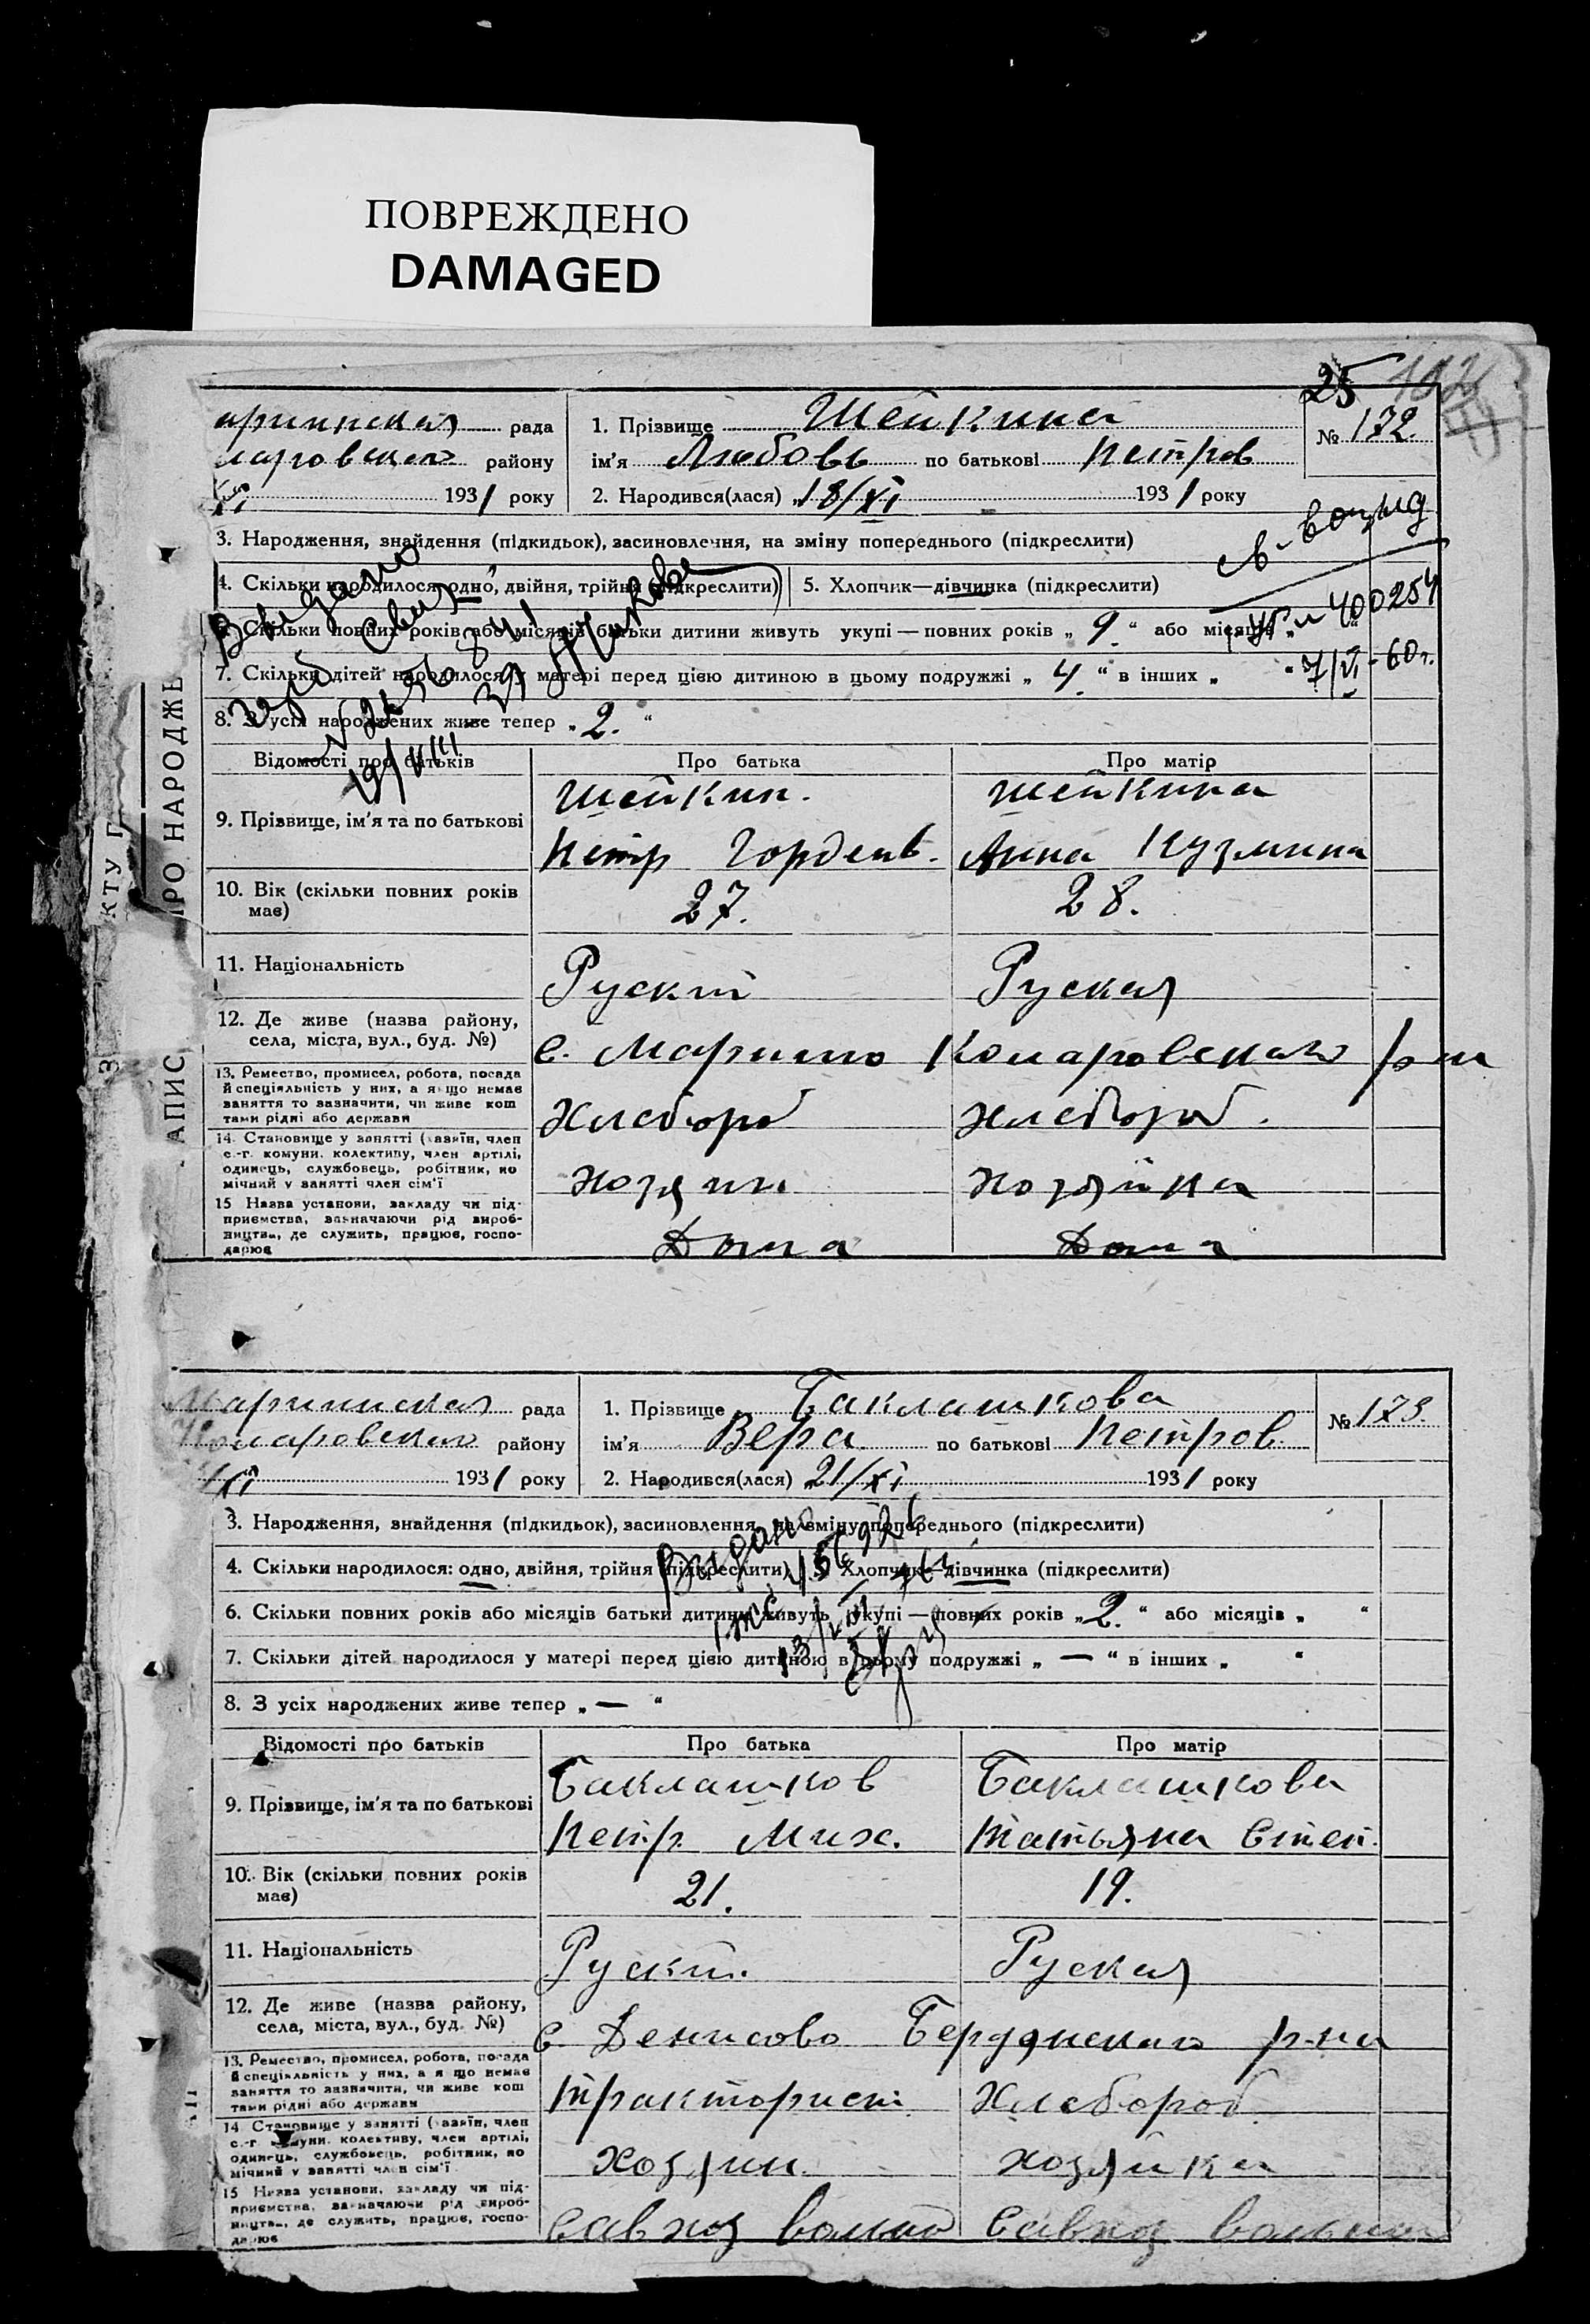 ПОВРЕЖДЕНО
DAMAGED
25
аринская рада
1. Прізвище Шейкина
№ 172.
маровского району
ім'я Любовь по батькові Петров
XI 1931 року
2. Народився(лася) „18/XI 1931 року
3. Народження, знайдення (підкидьок), засиновлення, на зміну попереднього (підкреслити)
4. Скільки народилося: одно, двійня, трійня (підкреслити)
5. Хлопчик—дівчинка (підкреслити)
400254
6. Скільки повних років або місяців батьки дитини живуть укупі — повних років „ 9. “ або місяців „
7/VI - 60 г.
7. Скільки дітей народилося у матері перед цією дитиною в цьому подружжі „ 4. “ в інших „ “
8. З усіх народжених живе тепер „ 2. “
Видано
19/VIII
Відомості про батьків
Про батька
Про матір
9. Прізвище, ім'я та по батькові
Шейкин.
Шейкина
Петр Гордеев.
Анна Кузмина
10. Вік (скільки повних років має)
27.
28.
11. Національність
Руский
Руская
12. Де живе (назва району,
села, міста, вул., буд. №)
с. Марино Комаровского р-на
13. Ремество, промисел, робота, посада
й спеціяльність у них, а якщо немає
заняття то зазначити, чи живе кош
тами рідні або держави
Хлебороб
Хлебороб.
14. Становище у занятті (хазяїн, член
с.-г. комуни, колективу, член артілі,
одинець, службовець, робітник, по
мічний у занятті член сім'ї
Хозяин.
Хозяйка
15 Назва установи, закладу чи під-
приємства, зазначаючи рід вироб-
ництва, де служить, працює, госпо-
дарює
Дома
Дома
РО НАРОДЖЕ
АПИС
КТУ
Маринская рада
1. Прізвище Баклашкова
№ 173.
Комаровского району
ім'я Вера по батькові Петров.
XI 1931 року
2. Народився(лася) „21/XI 1931 року
3. Народження, знайдення (підкидьок), засиновлення, на зміну попереднього (підкреслити)
4. Скільки народилося: одно, двійня, трійня (підкреслити)
5. Хлопчик—дівчинка (підкреслити)
6. Скільки повних років або місяців батьки дитини живуть укупі — повних років „ 2. “ або місяців „ “
7. Скільки дітей народилося у матері перед цією дитиною в цьому подружжі „ — “ в інших „ “
8. З усіх народжених живе тепер „ — “
Видано
Відомості про батьків
Про батька
Про матір
9. Прізвище, ім'я та по батькові
Баклашков
Баклашкова
Петр Мих.
Татьяна Степ.
10. Вік (скільки повних років має)
21.
19.
11. Національність
Руский.
Руская
12. Де живе (назва району,
села, міста, вул., буд. №)
с. Денисово Бердянского р-на
13. Ремество, промисел, робота, посада
й спеціяльність у них, а якщо немає
заняття то зазначити, чи живе кош
тами рідні або держави
Тракторист.
Хлебороб.
14 Становище у занятті (хазяїн, член
с.-г. комуни, колективу, член артілі,
одинець, службовець, робітник, по
мічний у занятті член сім'ї
Хозяин.
хозяйка
15 Назва установи, закладу чи під-
приємства, зазначаючи рід вироб-
ництва, де служить, працює, госпо-
дарює
Савхоз
Савхоз